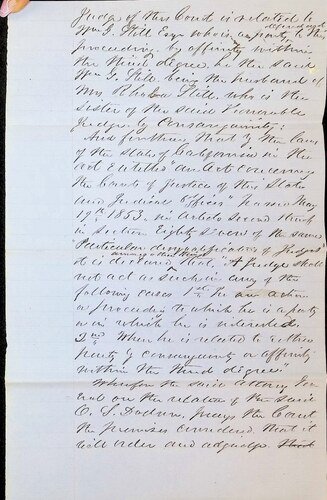 Judge of this Court is related to
Wm G. Hill Esqr who is a party defendant to this
proceeding by affinity within
the third degree he the said
Wm G. Hill being the husband of
Mrs Rhoda Hill, who is the
sister of the said Honorable
Judge by Consanguinity:
And further that by the laws
of the State of California in the
act Entitled "an Act Concerning
the Courts of Justice of this State
and Judicial Officers" Passed May
19th 1853. in Article second
in section Eighty seven of the same
Particular disqualifications of Judges
among other things
it is declared that "A Judge shall
not act as such in any of the
following cases 1st In an action
or proceeding to which he is a party
or in which he is interested
2nd When he is related to either
party by consanguinity or affinity
within the third degree"
Wherefore the said attorney Gen
eral on the relation of the said
C. S. prays the Court
the premises considered that it
will order and adjudge